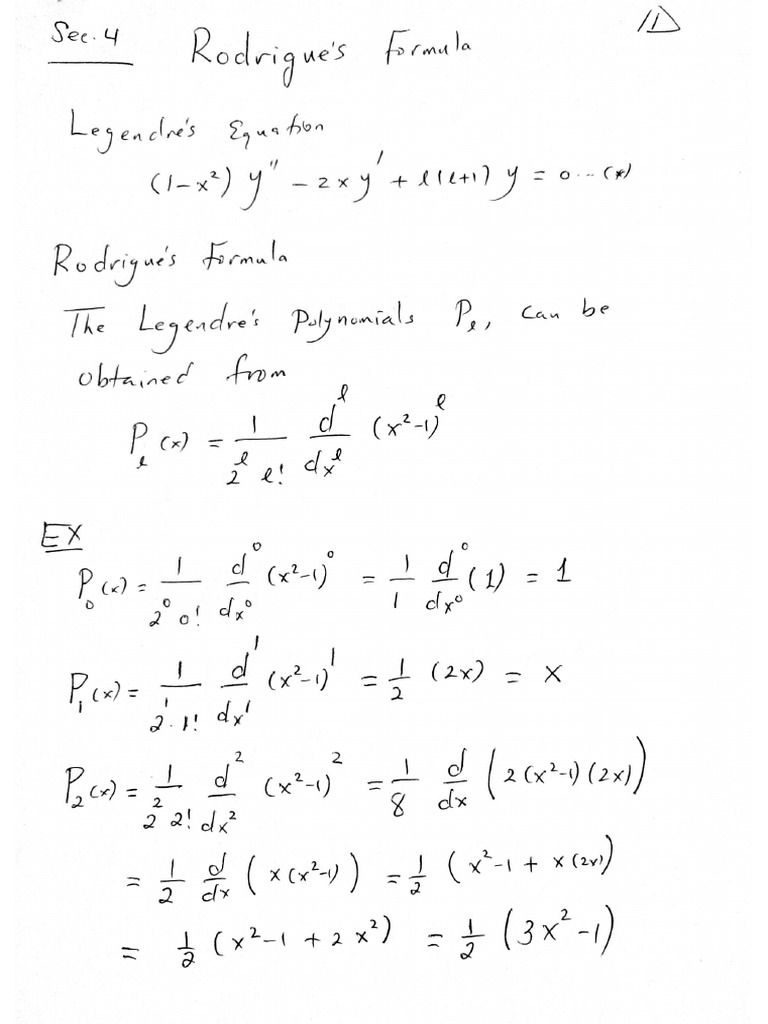 Sec. 4 Rodrigue's Formula 11
Legendre's Equation
(1-x²) y" - 2xy' + l(l+1) y = 0 ... (*)
Rodrigue's Formula
The Legendre's Polynomials Pₗ, can be
obtained from
Pₗ(x) = 1/(2^l l!) d^l/dx^l (x²-1)^l
EX
P₀(x) = 1/(2⁰ 0!) d⁰/dx⁰ (x²-1)⁰ = 1/1 d⁰/dx⁰ (1) = 1
P₁(x) = 1/(2¹·1!) d¹/dx¹ (x²-1)¹ = 1/2 (2x) = x
P₂(x) = 1/(2² 2!) d²/dx² (x²-1)² = 1/8 d/dx (2(x²-1)(2x))
= 1/2 d/dx (x(x²-1)) = 1/2 (x²-1 + x(2x))
= 1/2 (x²-1 + 2x²) = 1/2 (3x²-1)